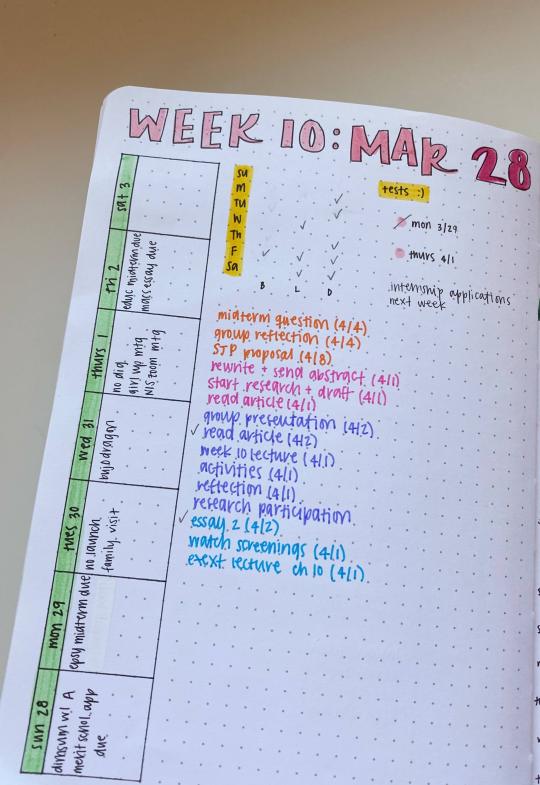 WEEK 10: MAR 28
su
M
TU
W
Th
F
Sa
B L D
tests :)
mon 3/29
thurs 4/1
internship applications
next week
midterm question (4/4)
group reflection (4/4)
SJP proposal (4/8)
rewrite + send abstract (4/1)
start research + draft (4/1)
read article (4/1)
group presentation (4/2)
✓ read article (4/2)
week 10 lecture (4/1)
activities (4/1)
reflection (4/1)
research participation
✓ essay 2 (4/2)
watch screenings (4/1)
lecture ch 10 (4/1)
sat 3
fri 2
educ midterm due
mass essay due
thurs 1
no dig
girl up mtg
NIS zoom mtg
wed 31
bujo dragon
tues 30
no launch
family visit
mon 29
epsy midterm due
sun 28
dimsum w/ A
merit schol. app
due